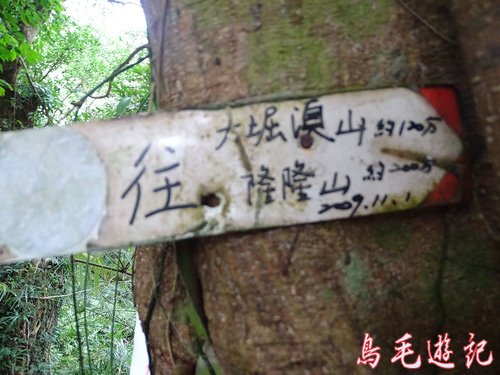 往
大堀溴山 約120分
隆隆山 約200分
2009.11.1
鳥毛遊記